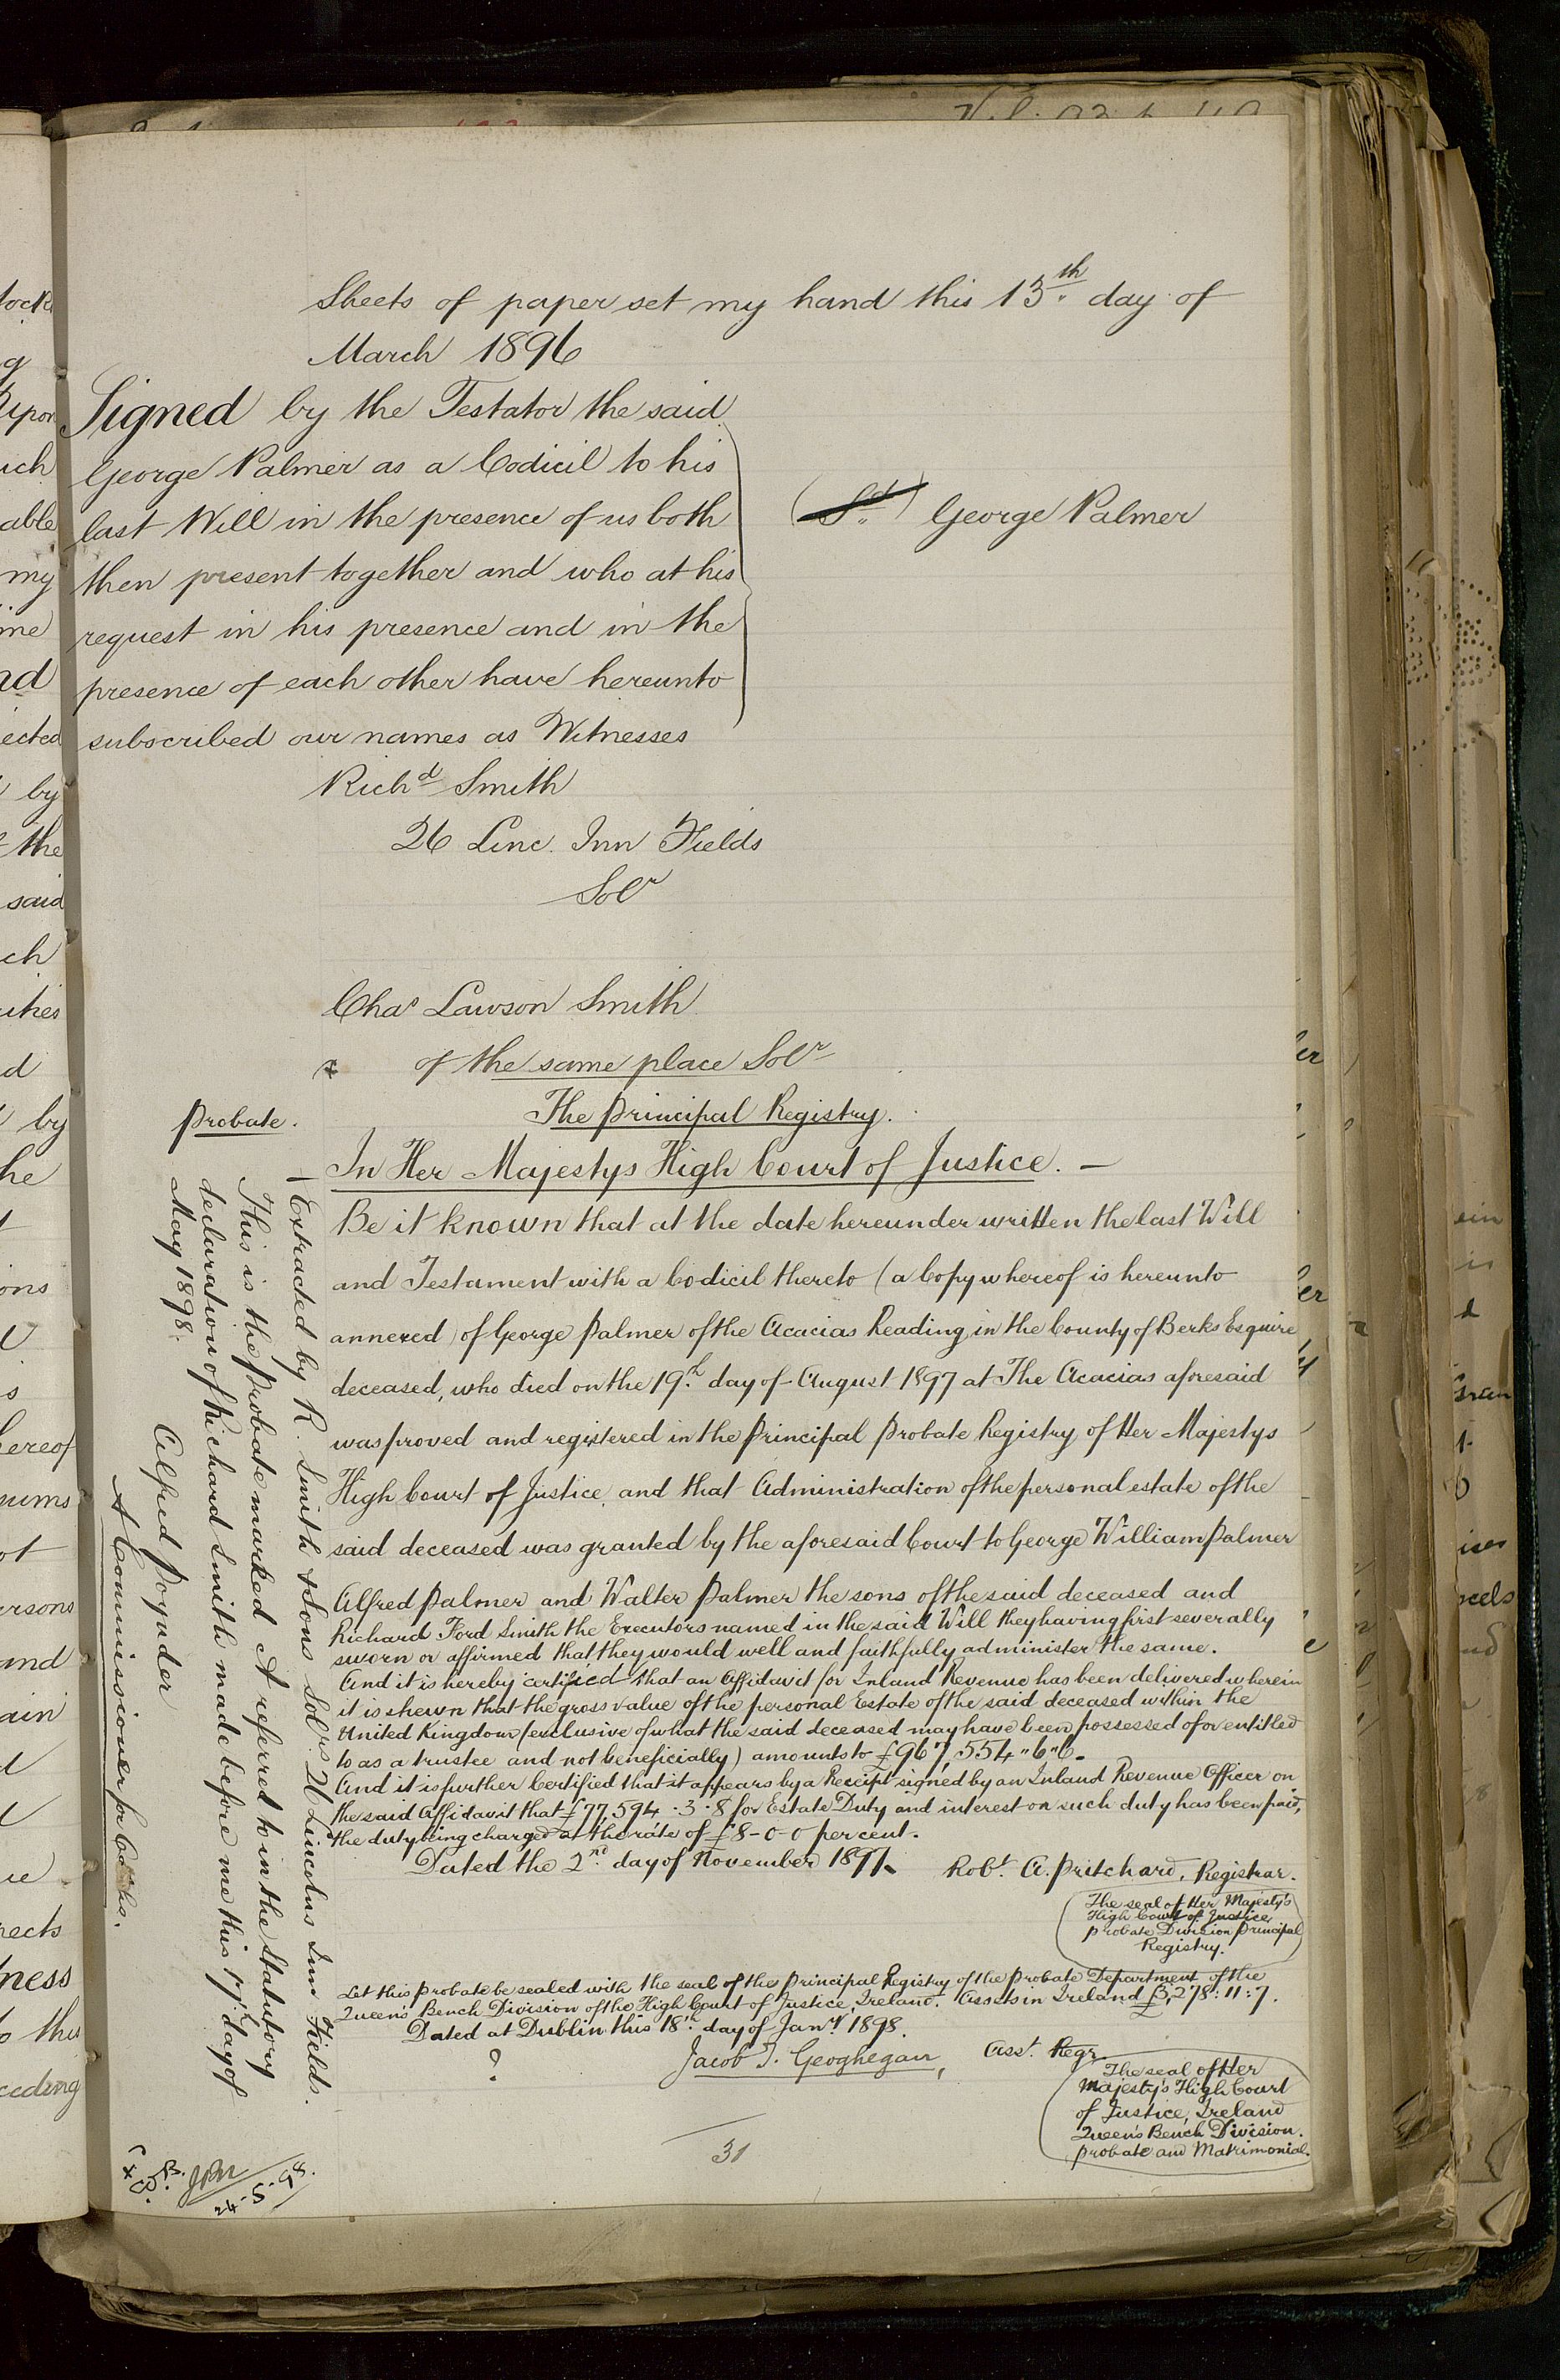 Sheets of paper set my hand this 13th day of
March 1896
Signed by the Testator the said
George Palmer as a Codicil to his
last Will in the presence of us both
then present together and who at his
request in his presence and in the
presence of each other have hereunto
subscribed our names as Witnesses
(Sd) George Palmer
Richd Smith
26 Linc. Inn Fields
Solr
Chas Lawson Smith
of the same place Solr
Probate.
The Principal Registry.
In Her Majestys High Court of Justice. —
Be it known that at the date hereunder written the last Will
and Testament with a Codicil thereto (a Copy whereof is hereunto
annexed) of George Palmer of the Acacias Reading in the County of Berks Esquire
deceased, who died on the 19th day of August 1897 at The Acacias aforesaid
was proved and registered in the Principal Probate Registry of Her Majestys
High Court of Justice and that Administration of the personal estate of the
said deceased was granted by the aforesaid Court to George William Palmer
Alfred Palmer and Walter Palmer the sons of the said deceased and
Richard Ford Smith the Executors named in the said Will they having first severally
sworn or affirmed that they would well and faithfully administer the same.
And it is hereby certified that an Affidavit for Inland Revenue has been delivered wherein
it is shewn that the gross value of the personal Estate of the said deceased within the
United Kingdom (exclusive of what the said deceased may have been possessed of or entitled
to as a trustee and not beneficially) amounts to £967,554 " 6 " 6.
And it is further Certified that it appears by a Receipt signed by an Inland Revenue Officer on
the said Affidavit that £77,594 . 3 . 8 for Estate Duty and interest on such duty has been paid,
the duty being charged at the rate of £8-0-0 per cent.
Dated the 2nd day of November 1897.
Robt. A. Pritchard, Registrar.
The seal of Her Majesty's
High Court of Justice,
Probate Division Principal
Registry.
Let this Probate be sealed with the seal of the Principal Registry of the Probate Department of the
Queen's Bench Division of the High Court of Justice, Ireland. Assets in Ireland £3,278 : 11 : 7.
Dated at Dublin this 18th day of Jany 1898.
?
Jacob T. Geoghegan, Asst. Regr.
The seal of Her
Majesty's High Court
of Justice, Ireland
Queen's Bench Division.
Probate and Matrimonial.
31
— Extracted by R. Smith & Sons Solrs 26 Lincolns Inn Fields.
This is the Probate marked A referred to in the Statutory
declaration of Richard Smith made before me this 17th day of
May 1898.
Alfred Poynder
A Commissioner for Oaths.
24-5-98.